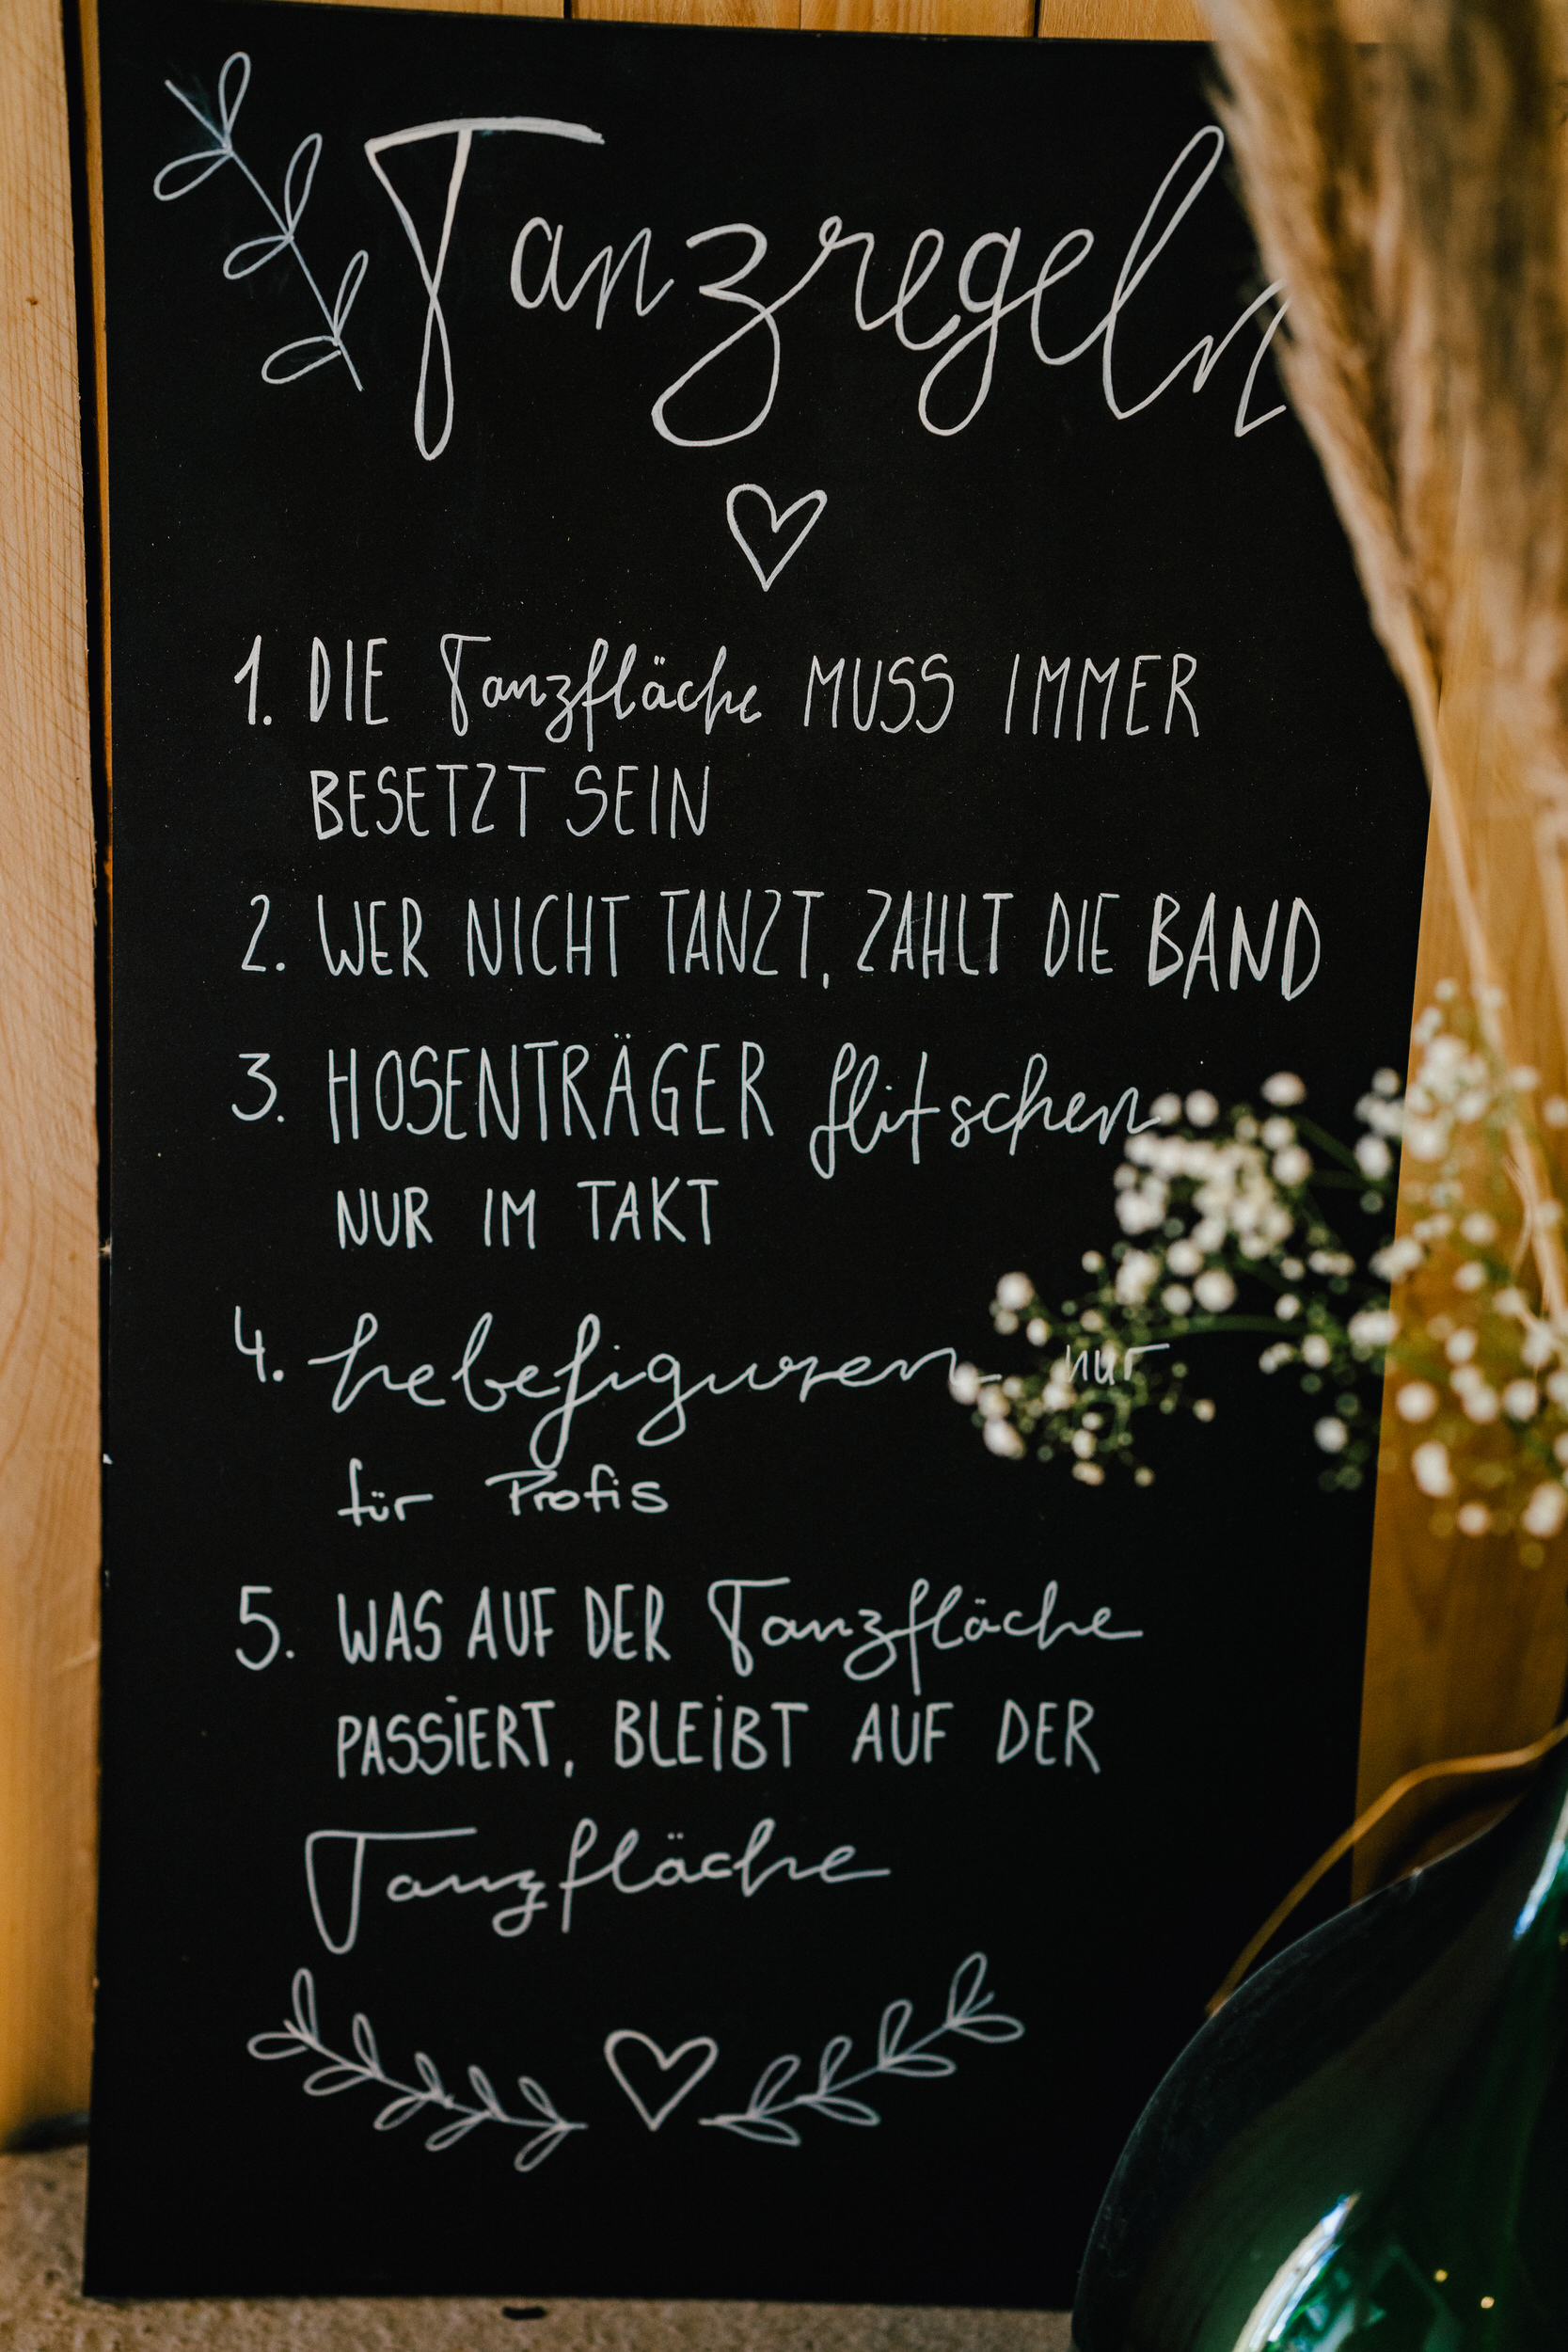 Tanzregeln
1. DIE Tanzfläche MUSS IMMER
BESETZT SEIN
2. WER NICHT TANZT, ZAHLT DIE BAND
3. HOSENTRÄGER flitschen
NUR IM TAKT
4. hebefiguren nur
für Profis
5. WAS AUF DER Tanzfläche
PASSiERT, BLEiBT AUF DER
Tanzfläche